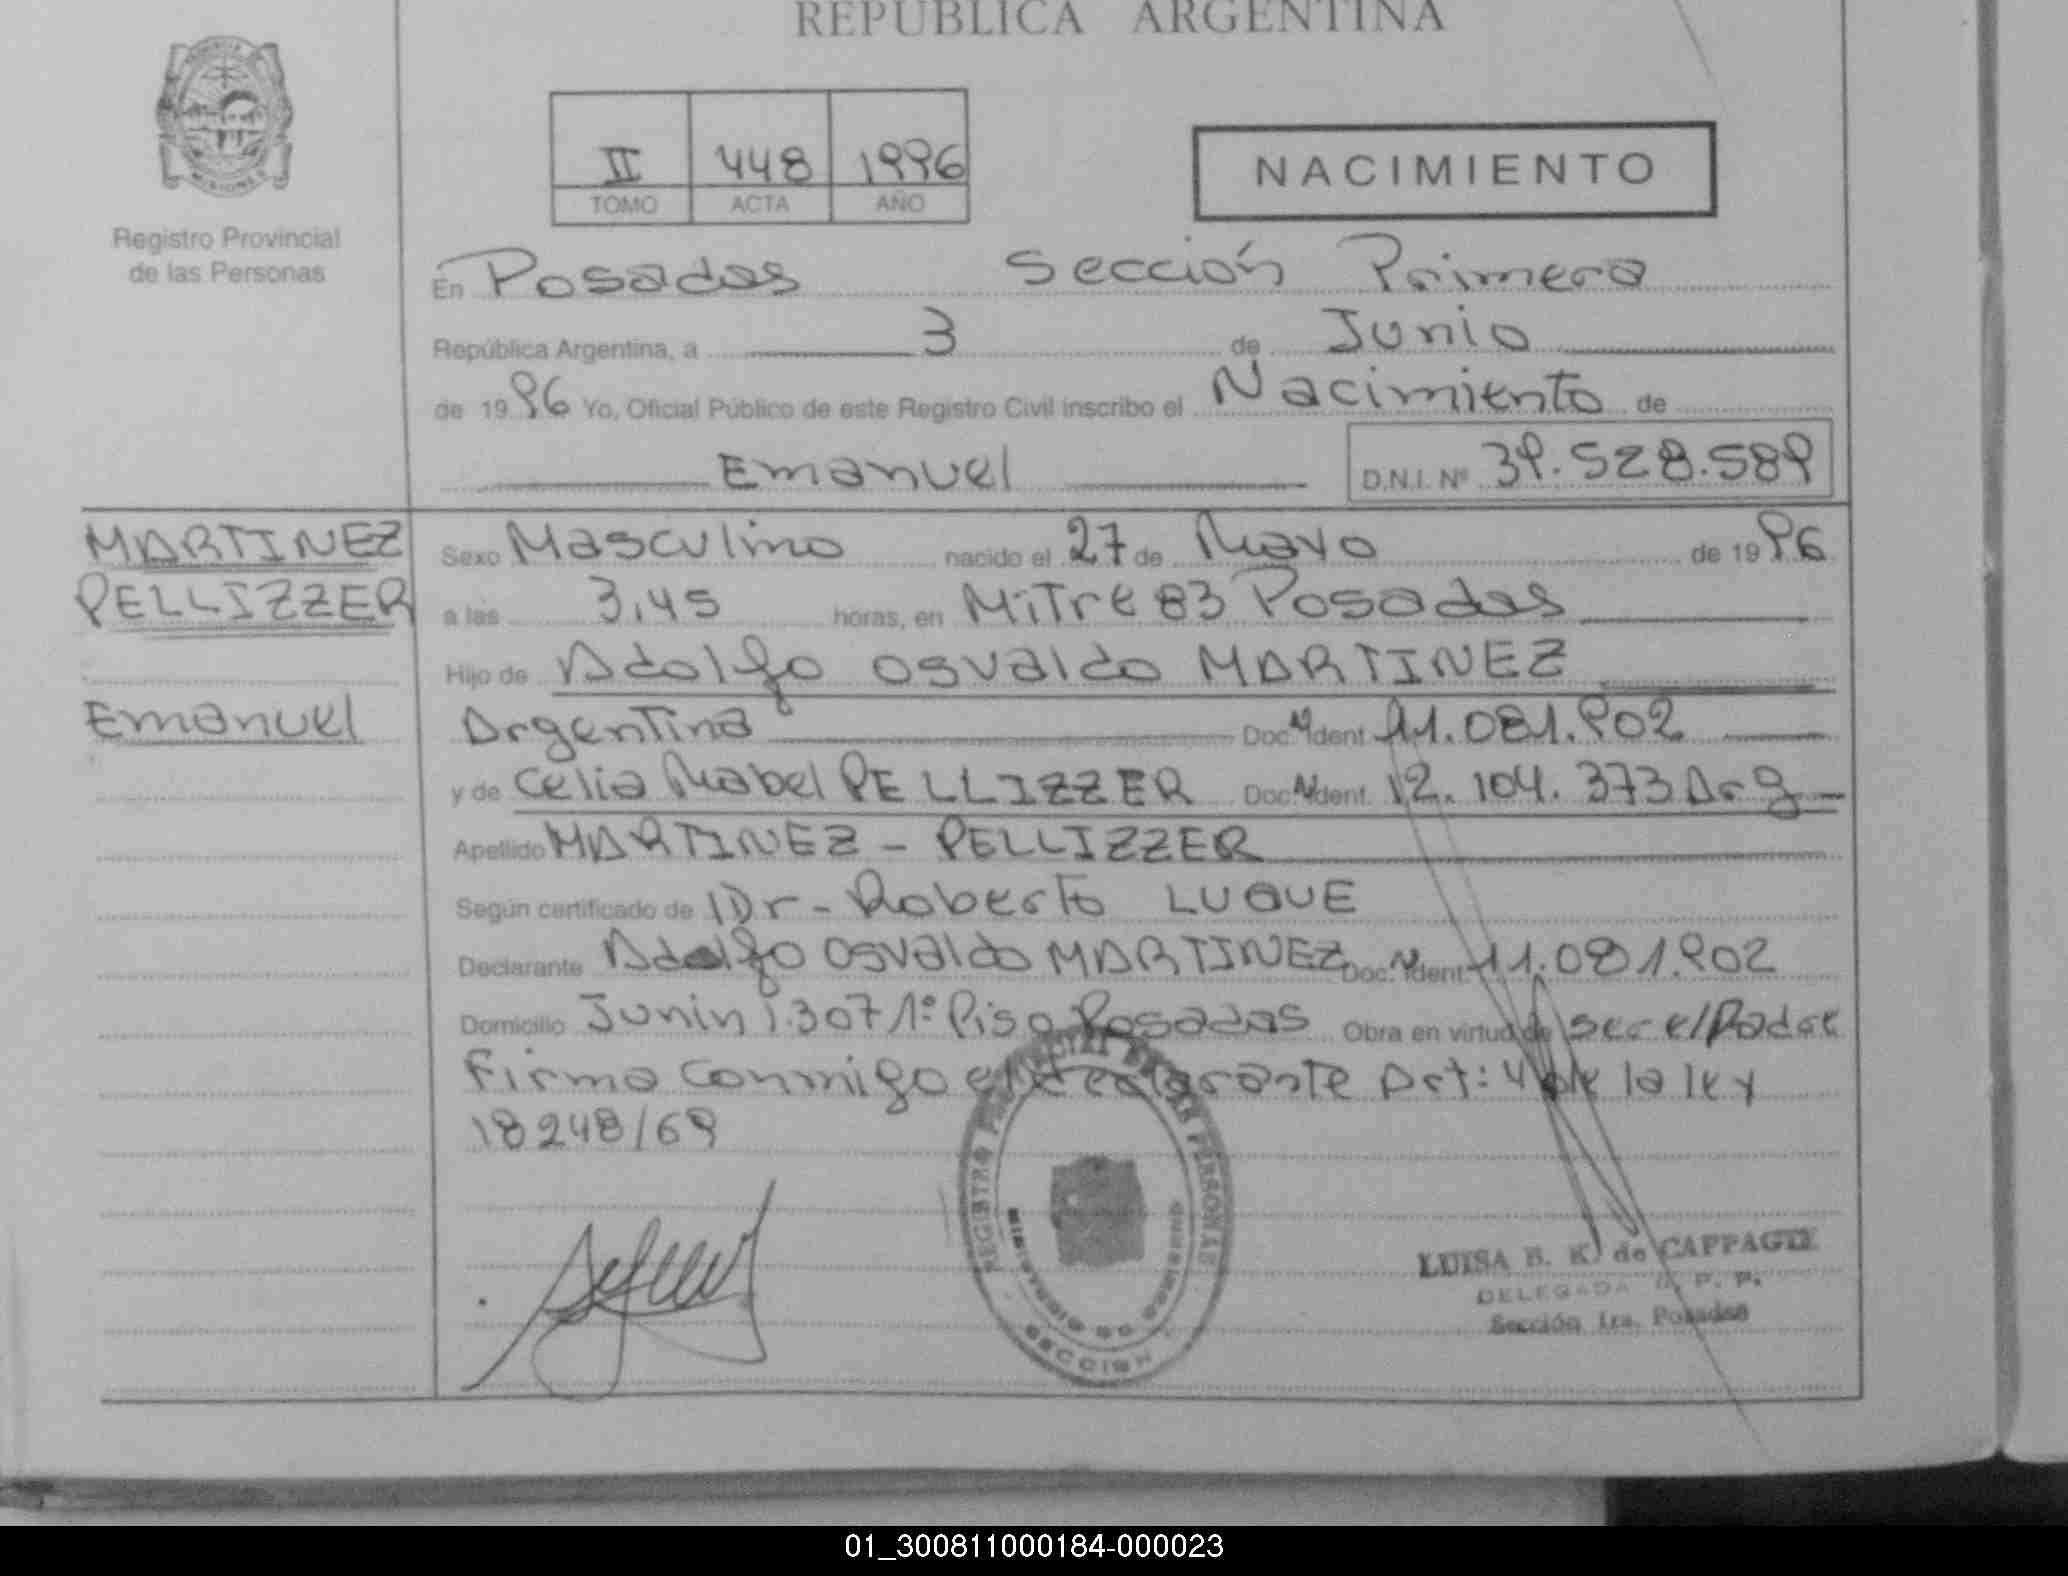 REPUBLICA ARGENTINA
MISIONES
Registro Provincial
de las Personas
II 448 1996
TOMO ACTA AÑO
NACIMIENTO
En Posadas Sección Primera
República Argentina, a 3 de Junio
de 1996 Yo, Oficial Público de este Registro Civil inscribo el Nacimiento de
Emanuel D.N.I. Nº 39.528.589
MARTINEZ
PELLIZZER
Emanuel
Sexo Masculino nacido el 27 de Mayo de 1996
a las 3,45 horas, en Mitre 83 Posadas
Hijo de Adolfo Osvaldo MARTINEZ
Argentina Doc. N Ident. 11.081.902
y de Celia Mabel PELLIZZER Doc. N Ident. 12.104.373 Arg
Apellido MARTINEZ - PELLIZZER
Según certificado de Dr - Roberto LUQUE
Declarante Adolfo Osvaldo MARTINEZ Doc. N Ident. 11.081.902
Domicilio Junin 1.307 1º Piso Posadas Obra en virtud de ser el Padre
Firma Conmigo el declarante Art: 4 de la ley
18248/69
REGISTRO PROVINCIAL DE LAS PERSONAS
MINISTERIO DE GOBIERNO
SECCION
LUISA B. K. de CAPPAGLI
DELEGADA R. P. P.
Sección 1ra. Posadas
01_300811000184-000023